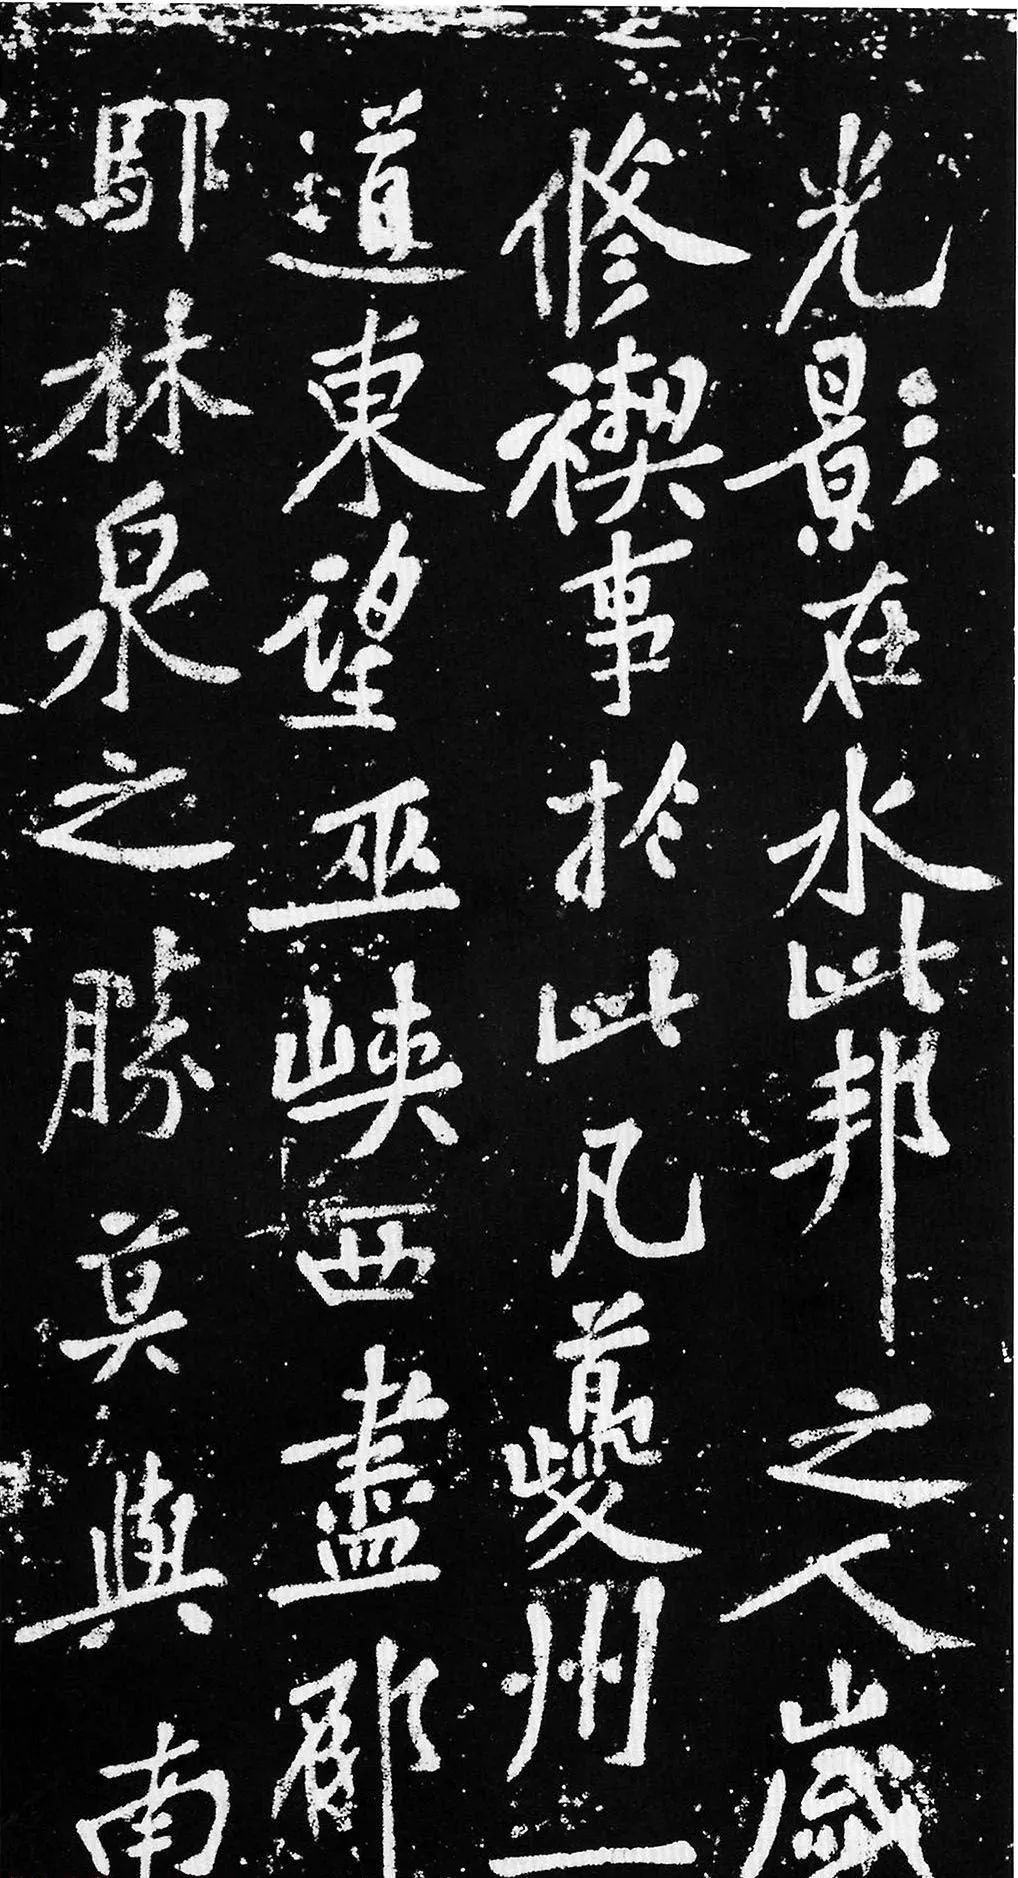 光影在水此邦之人歲
修禊事於此凡夔州一
道東望巫峽西盡郁
鄢林泉之勝莫與南